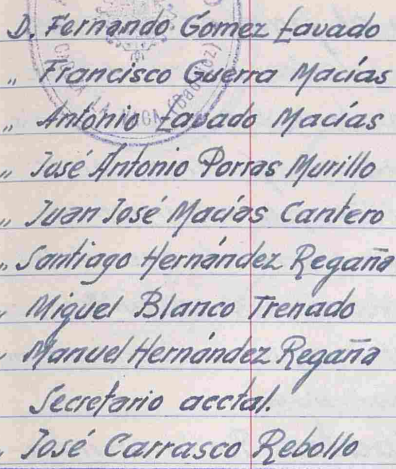 D. Fernando Gomez Lavado
„ Francisco Guerra Macías
„ Antonio Lavado Macías
„ José Antonio Porras Murillo
„ Juan José Macías Cantero
„ Santiago Hernández Regaña
„ Miguel Blanco Trenado
„ Manuel Hernández Regaña
Secretario acctal.
„ José Carrasco Rebollo